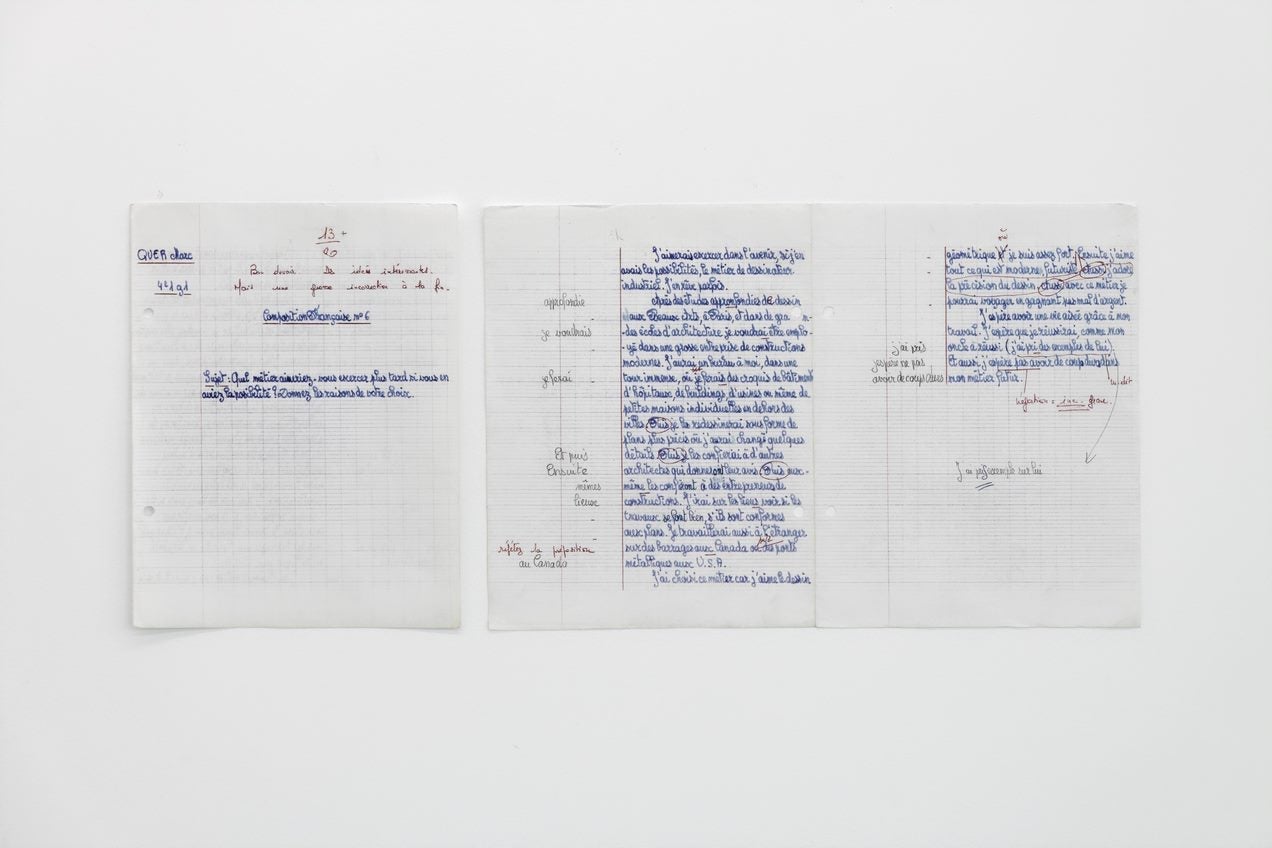 QUER Marc
4e1 g1
13 +
20
Bon devoir. Des idées intéressantes.
Mais une grosse incorrection à la fin.
Composition Française n° 6
Sujet : Quel métier aimeriez-vous exercer plus tard si vous en
aviez la possibilité ? Donnez les raisons de votre choix.
J'aimerais exercer dans l'avenir, si j'en
avais les possibilités, le métier de dessinateur
industriel. J'en rêve parfois.
approfondie
Après des études approfondies de dessin
aux Beaux Arts, à Paris, et dans de gran-
je voudrais
-des écoles d'architecture, je voudrai être emplo-
-yé dans une grosse entreprise de constructions
modernes. J'aurai un bureau à moi, dans une
je ferai
tour immense, où je ferais des croquis de bâtiments
d'hôpitaux, de buildings, d'usines ou même de
petites maisons individuelles en dehors des
villes. Puis je les redessinerai sous forme de
plans plus précis où j'aurai changé quelques
Et puis
détails. Puis je les confierai à d'autres
Ensuite
architectes qui donneront leur avis. Puis eux-
mêmes
même les confieront à des entrepreneurs de
lieux
constructions. J'irai sur les lieux voir si les
travaux se font bien, s'ils sont conformes
aux plans. Je travaillerai aussi à l'étranger
répétez la préposition
sur des barrages aux Canada ou des ponts
au Canada
métalliques aux U.S.A.
J'ai choisi ce métier car j'aime le dessin
géométrique je suis assez fort. Ensuite j'aime
tout ce qui est moderne, futuriste. Aussi j'adore
la précision du dessin. Aussi avec ce métier je
pourrai voyager en gagnant pas mal d'argent.
J'espère avoir une vie aisée grâce à mon
travail. J'espère que je réussirai, comme mon
j'ai pris
oncle a réussi (j'ai pri des exemples de lui)
j'espère ne pas
Et aussi j'espère pas avoir de coups durs dans
avoir de coups durs
mon métier futur.
négation = inc. grave.
J'ai pris exemple sur lui